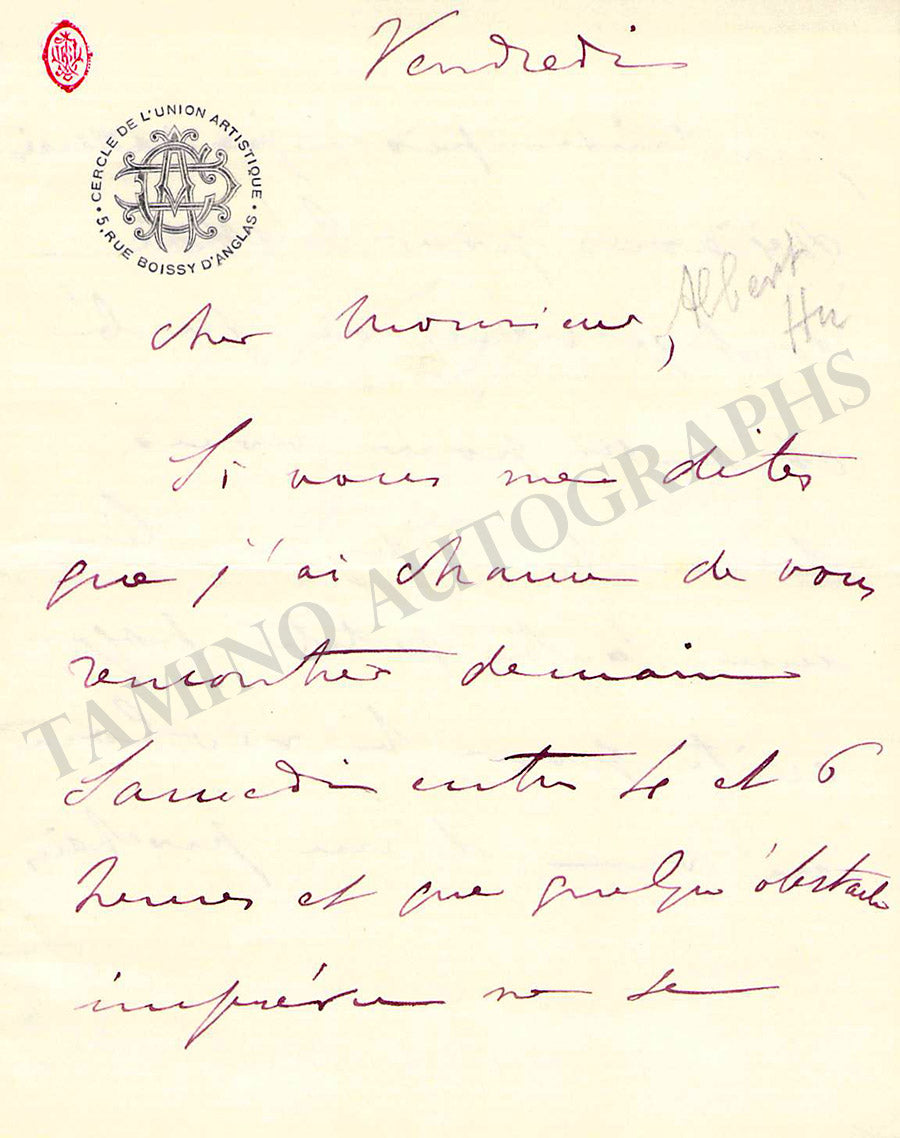 Vendredi
CERCLE DE L'UNION ARTISTIQUE
5, RUE BOISSY D'ANGLAS
Cher Monsieur,
Albert
Hu
Si vous me dites
que j'ai chance de vous
rencontrer demain
Samedi entre 4 et 6
heures et que quelqu'obstacle
imprévu ne se
TAMINO AUTOGRAPHS